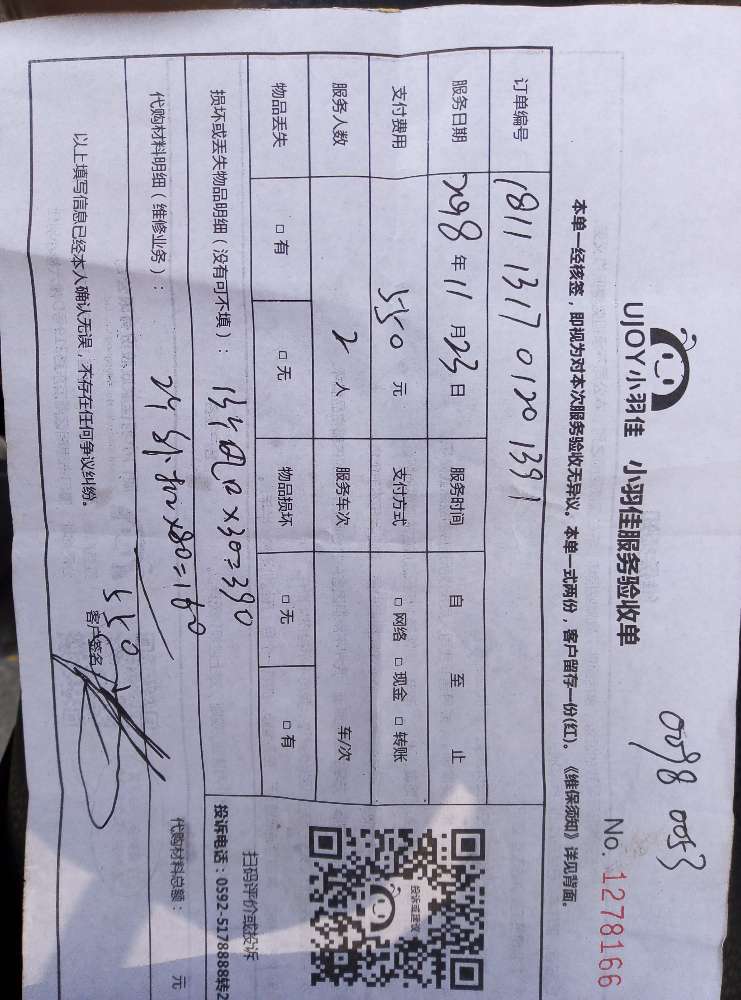 0098 0053
UJOY小羽佳 小羽佳服务验收单
No. 1278166
本单一经核签，即视为对本次服务验收无异议。本单一式两份，客户留存一份(红)。《维保须知》详见背面。
订单编号 1811 1317 0120 1391
服务日期 年 11 月 23 日 服务时间 自 至 止
支付费用 550 元 支付方式 □ 网络 □ 现金 □ 转账
服务人数 2 人 服务车次 车/次
物品丢失 □ 有 □ 无 物品损坏 □ 无 □ 有
损坏或丢失物品明细（没有可不填）： 13个风口×30=390
代购材料明细（维修业务）： 2个外机×80=160
550
代购材料总额： 元
以上填写信息已经本人确认无误，不存在任何争议纠纷。 客户签名
投诉或建议
扫码评价或投诉
投诉电话：0592-5178888转2